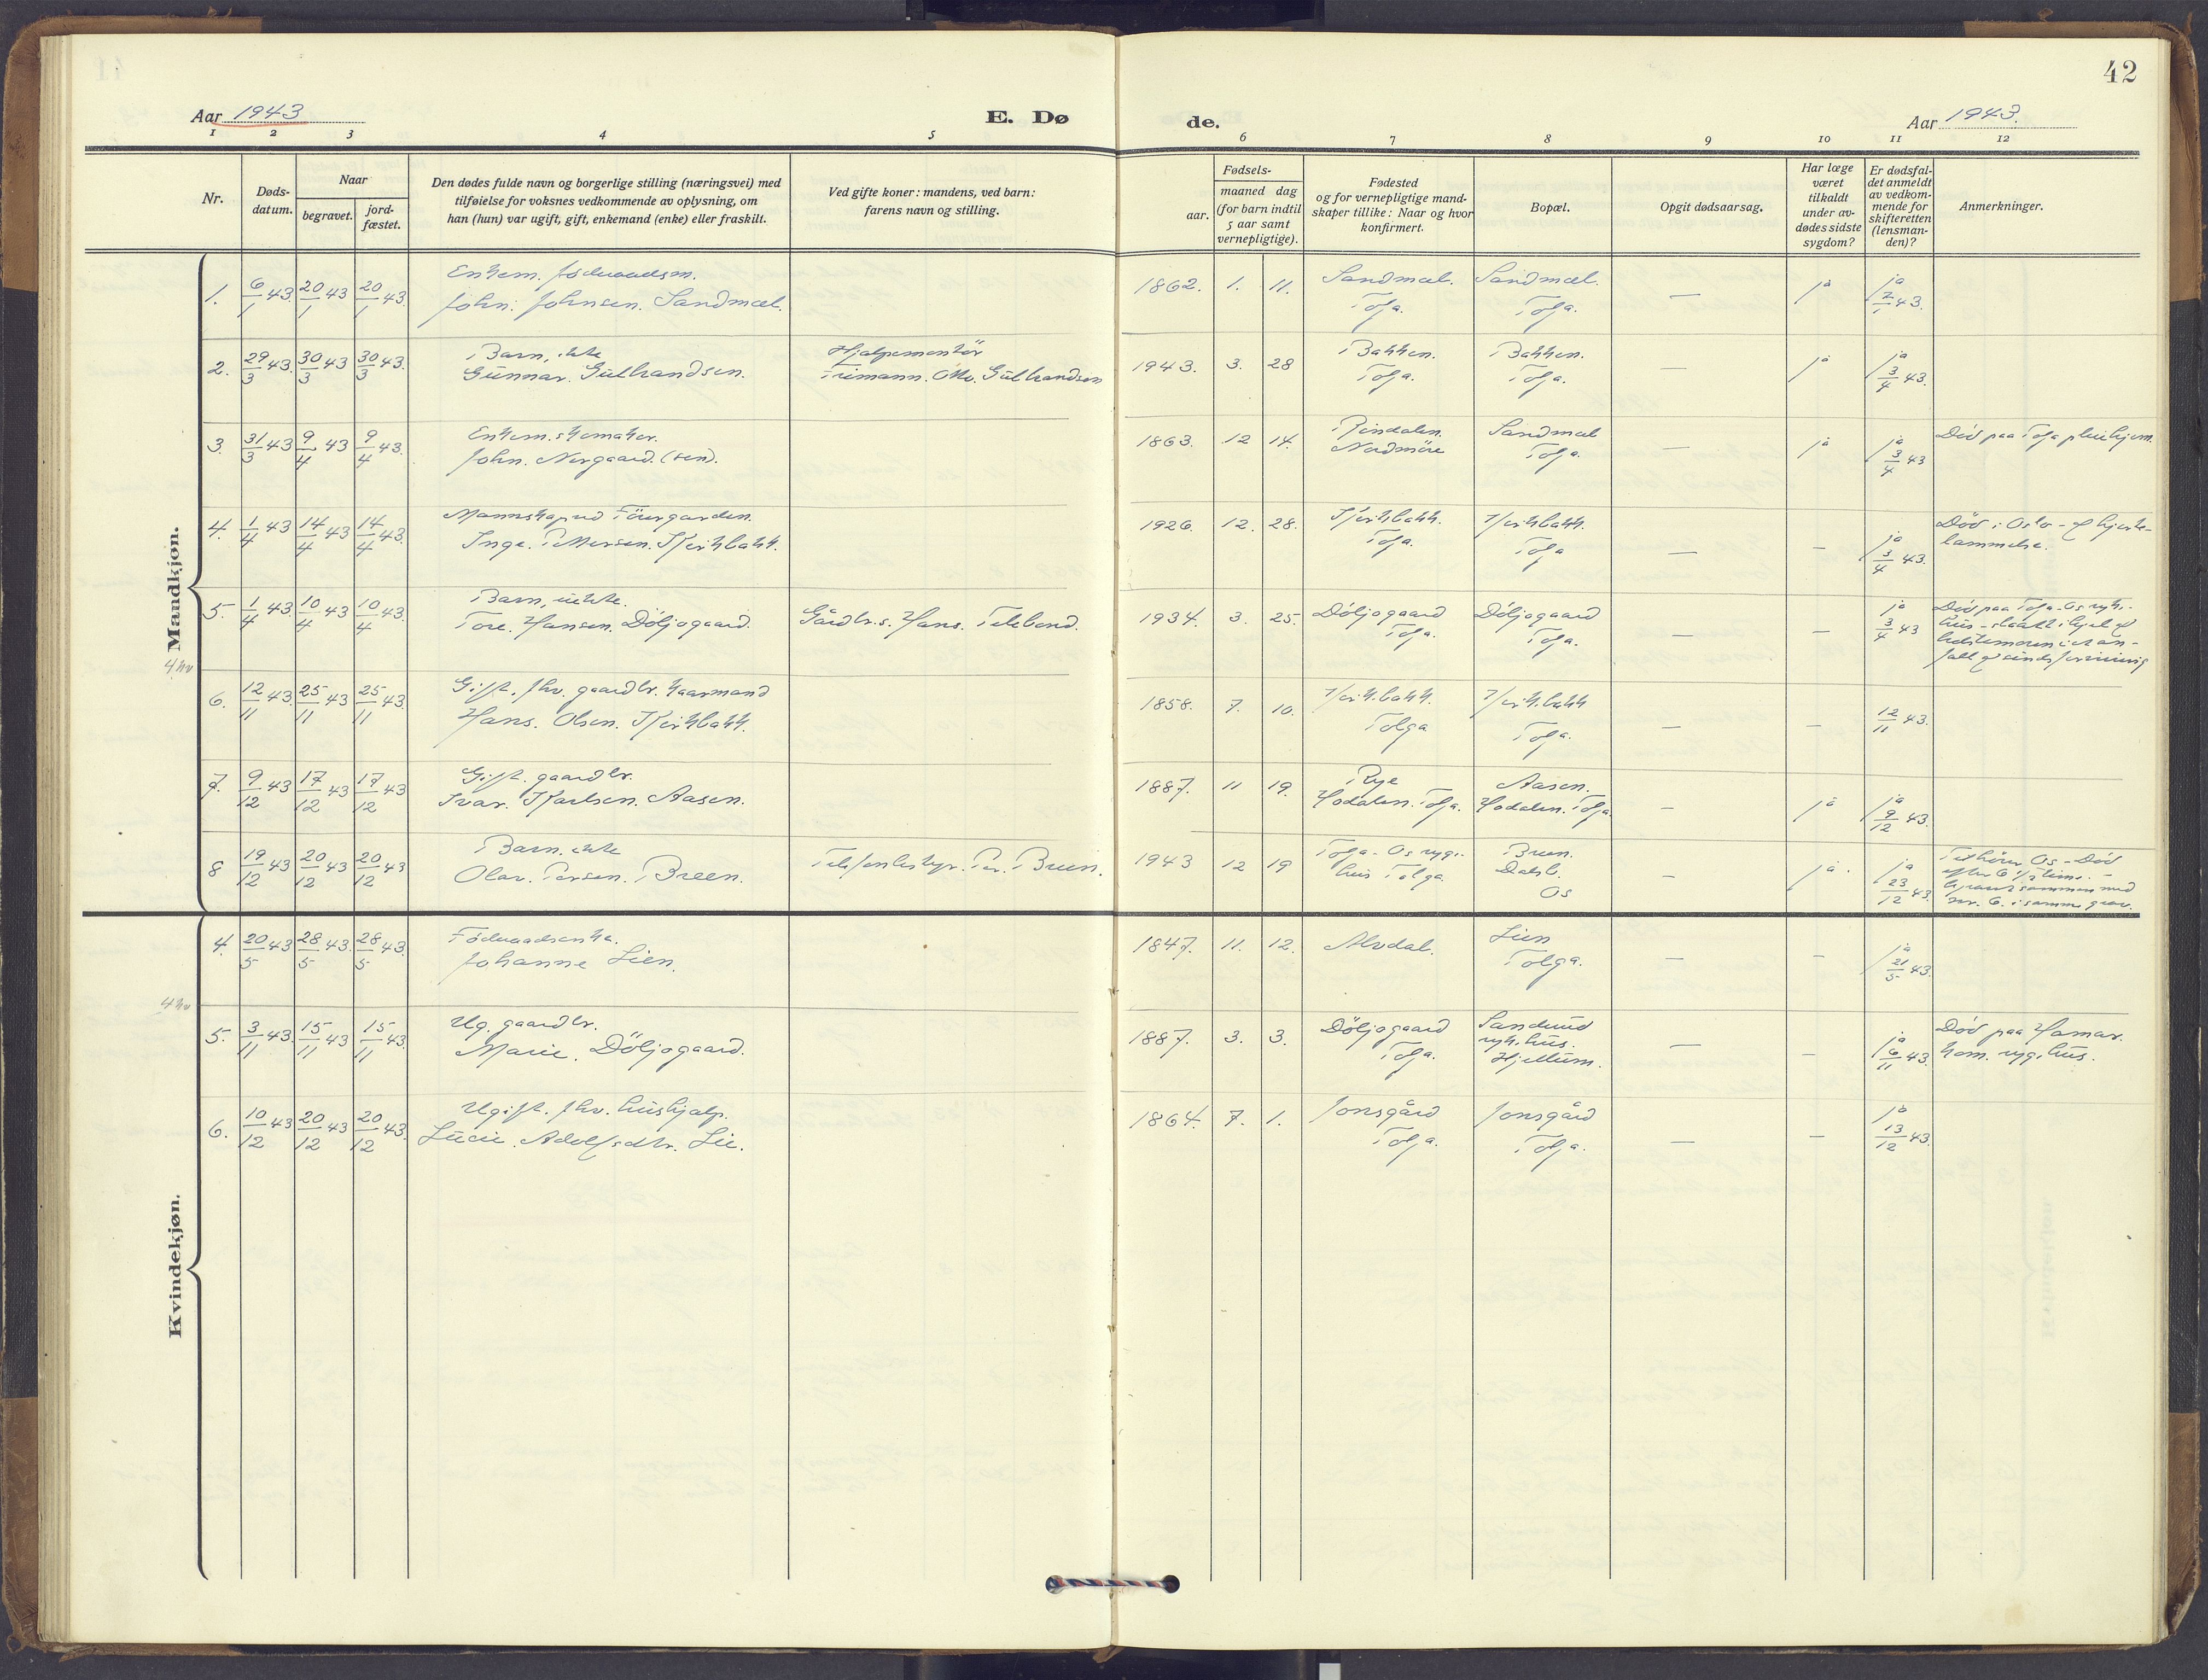 42
Aar 1943
E. Dø
de.
Aar 1943.
1 2 3 4 5 6 7 8 9 10 11 12
Nr.
Døds-
datum.
Naar
begravet.
jord-
fæstet.
Den dødes fulde navn og borgerlige stilling (næringsvei) med
tilføielse for voksnes vedkommende av oplysning, om
han (hun) var ugift, gift, enkemand (enke) eller fraskilt.
Ved gifte koner: mandens, ved barn:
farens navn og stilling.
Fødsels-
aar.
maaned dag
(for barn indtil
5 aar samt
vernepligtige).
Fødested
og for vernepligtige mand-
skaper tillike: Naar og hvor
konfirmert.
Bopæl.
Opgit dødsaarsag.
Har læge
været
tilkaldt
under av-
dødes sidste
sygdom?
Er dødsfal-
det anmeldt
av vedkom-
mende for
skifteretten
(lensman-
den)?
Anmerkninger.
Mandkjøn.
1. 6/1 43. 20/1 43 20/1 43. Enkem. föderaadsm.
John. Johnsen. Sandmæl.
1862. 1. 11. Sandmæl. Tolga. Sandmæl. Tolga. — ja ja 7/1 43.
2. 29/3 43. 30/3 43 30/3 43. Barn, ekte
Gunnar. Gulbrandsen.
Hjelpemontör
Trimann. Otto. Gulbrandsen
1943. 3. 28 Bakken. Tolga. Bakken. Tolga. — ja ja 3/4 43.
3. 31/3 43 9/4 43 9/4 43. Enkem. skomaker.
John. Norgaard. (sen).
1863. 12 14. Rindalen. Nordmöre Sandmæl Tolga. — ja ja 3/4 43 Död paa Tolga pleiehjem.
4. 1/4 43 14/4 43 14/4 43. Mannskap ved Förergarden.
Inge. Pettersen. Kirkbakk.
1926. 12. 28. Kirkbakk. Tolga. Kirkbakk. Tolga — — ja 3/4 43. Död i Oslo - af hjerte-
lammelse.
5. 1/4 43. 10/4 43 10/4 43. Barn, uekte.
Tore. Hansen. Döljogaard.
Gårdbr.s. Hans. Telebond.
1934. 3. 25. Döljogaard Tolga. Döljogaard Tolga. — — ja 3/4 43 Död paa Tolga-Os syke-
hus - slaatt ihjel af
bestemoren i et an-
fall af sindsforvirring
6. 12/11 43. 25/11 43 25/11 43. Gift. fhv. gaardbr. kaarmand
Hans. Olsen. Kirkbakk.
1858. 7. 10. Kirkbakk. Tolga Kirkbakk Tolga. — — 12/11 43.
7. 9/12 43 17/12 43 17/12 43 Gift. gaardbr.
Ivar. Karlsen. Aasen.
1887. 11 19. Rye Hodalen. Tolga. Aasen. Hodalen. Tolga. — ja ja 9/12 43.
8 19/12 43 20/12 43 20/12 43 Barn. ekte
Olav. Persen. Breen.
Telefonbestyr. Per. Breen.
1943 12 19 Tolga-Os syge-
hus Tolga Breen. Dalsb. Os — ja. ja 23/12 43. Tilhörer Os - Död
efter 6 1/2 time. -
begravet sammen med
nr. 6. i samme grav.
Kvindekjøn.
4. 20/5 43 28/5 43. 28/5 43. Föderaadsenke.
Johanne Lien.
1847. 11. 12. Alvdal. Lien Tolga. — — ja 21/5 43.
5. 3/11 43. 15/11 43 15/11 43. Ug. gaardbr.
Marie. Döljogaard.
1887. 3. 3. Döljogaard Tolga. Sanderud sykehus. Hjellum. — — ja 6/11 43. Död paa Hamar.
kom. sygehus.
6. 10/12 43 20/12 43 20/12 43. Ugift. fhv. hushjelp.
Lucie. Adolfsdtr. Lie.
1864. 7. 1. Jonsgård Tolga. Jonsgård Tolga. — — ja 13/12 43.